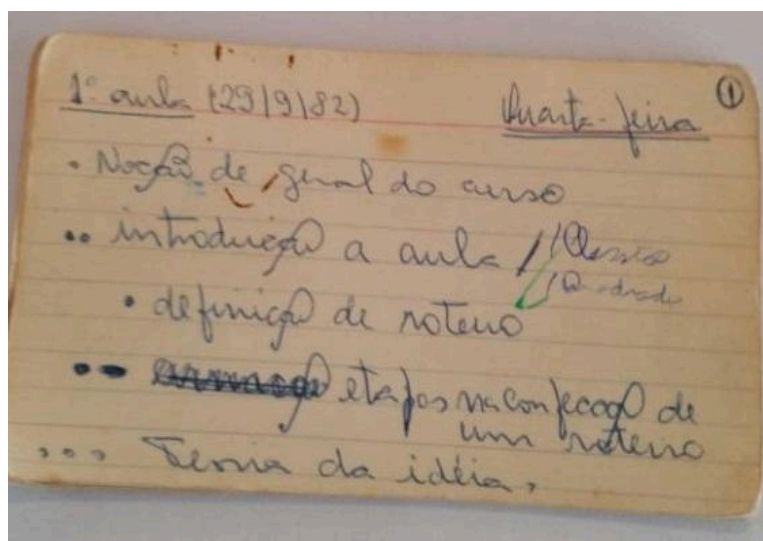 1ª aula (29/9/82) Quarta-feira ①
• Noção de geral do curso
•• introdução a aula / Clássico
Quadrado
• definição de roteiro
•• etapas na confecção de
um roteiro
••• Teoria da idéia.